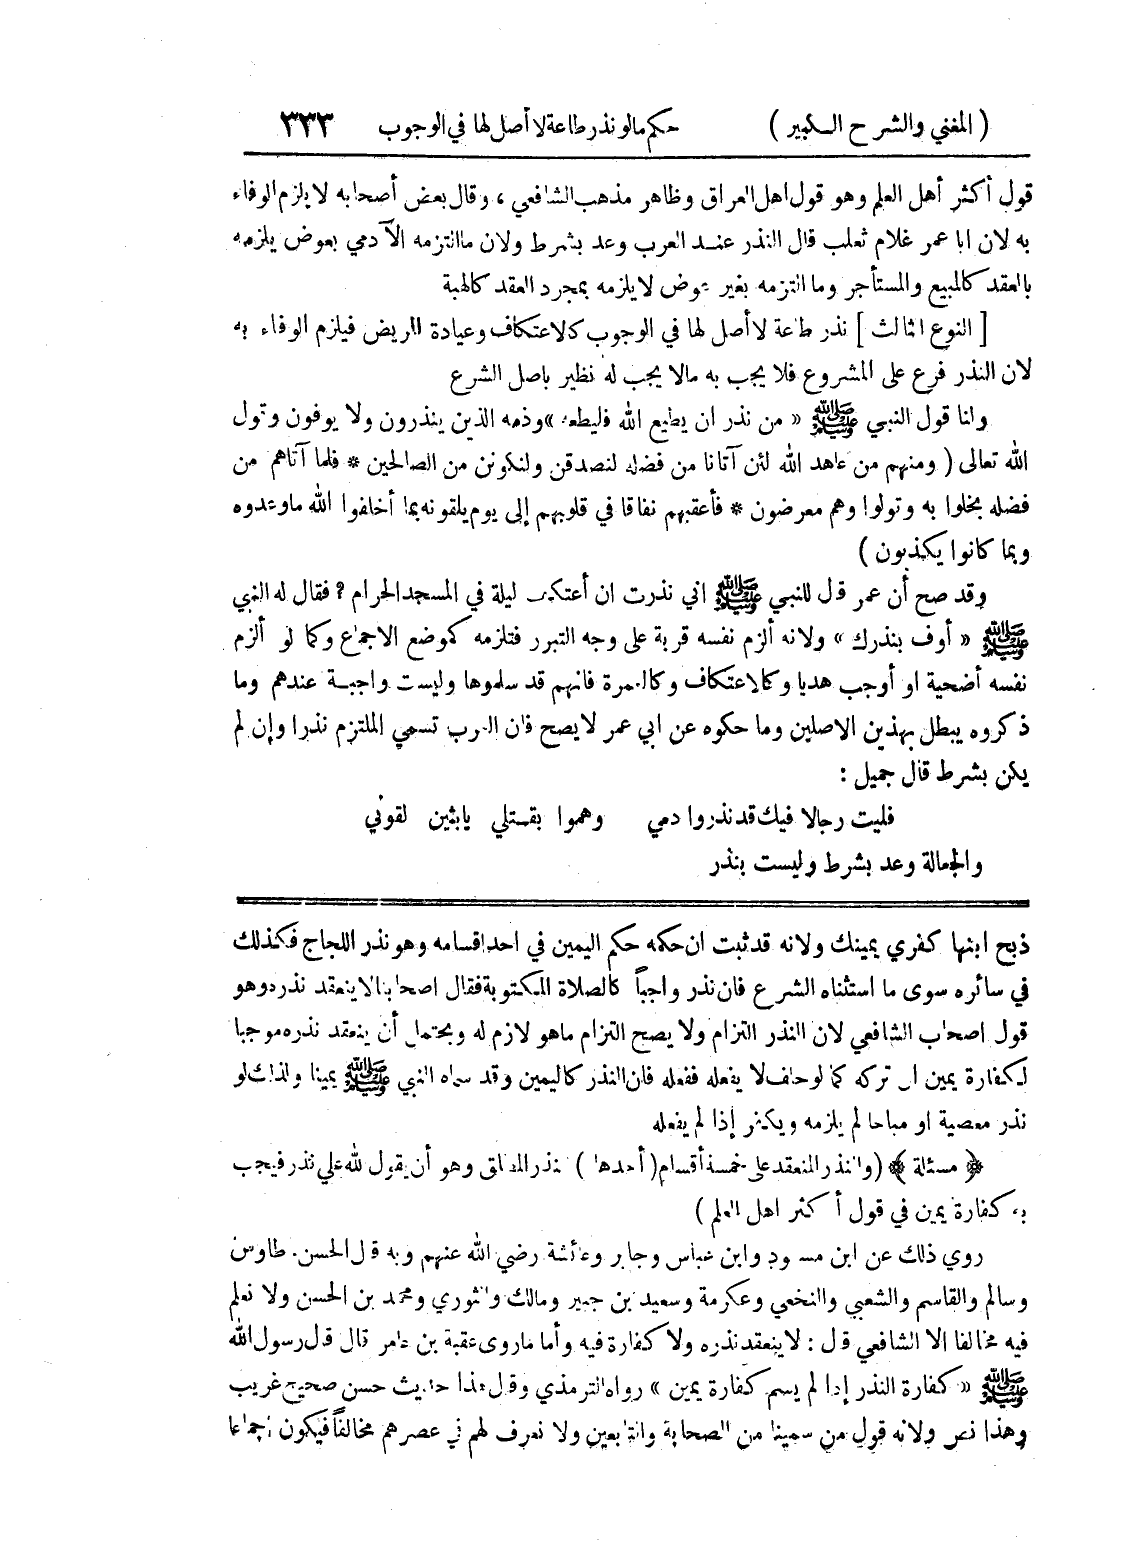 ( المغني والشرح الكبير ) حكم مالو نذر طاعة لا أصل لها في الوجوب ٣٣٣
قول أكثر أهل العلم وهو قول اهل العراق وظاهر مذهب الشافعي ، وقال بعض أصحابه لا يلزم الوفاء
به لان ابا عمر غلام ثعلب قال النذر عند العرب وعد بشرط ولان ما التزمه الآدمي بعوض يلزمه
بالعقد كالمبيع والمستأجر وما التزمه بغير عوض لا يلزمه بمجرد العقد كالهبة
[ النوع الثالث ] نذر طاعة لا أصل لها في الوجوب كالاعتكاف وعيادة المريض فيلزم الوفاء به
لان النذر فرع على المشروع فلا يجب به مالا يجب له نظير باصل الشرع
ولنا قول النبي ﷺ « من نذر ان يطيع الله فليطعه » وذمه الذين ينذرون ولا يوفون وقول
الله تعالى ( ومنهم من عاهد الله لئن آتانا من فضله لنصدقن ولنكونن من الصالحين * فلما آتاهم من
فضله بخلوا به وتولوا وهم معرضون * فأعقبهم نفاقا في قلوبهم إلى يوم يلقونه بما أخلفوا الله ما وعدوه
وبما كانوا يكذبون )
وقد صح أن عمر قال للنبي ﷺ اني نذرت ان أعتكف ليلة في المسجد الحرام ؟ فقال له النبي
ﷺ « أوف بنذرك » ولانه ألزم نفسه قربة على وجه التبرر فتلزمه كموضع الاجماع وكما لو ألزم
نفسه أضحية او أوجب هديا وكالاعتكاف وكالعمرة فانهم قد سلموها وليست واجبة عندهم وما
ذكروه يبطل بهذين الاصلين وما حكوه عن ابي عمر لا يصح فان العرب تسمي الملتزم نذرا وإن لم
يكن بشرط قال جميل :
فليت رجالا فيك قد نذروا دمي وهموا بقتلي يابثين لقوني
والجعالة وعد بشرط وليست بنذر
ذبح ابنها كفري يمينك ولانه قد ثبت ان حكمه حكم اليمين في احد اقسامه وهو نذر اللجاج فكذلك
في سائره سوى ما استثناه الشرع فان نذر واجباً كالصلاة المكتوبة فقال اصحابنا لا ينعقد نذره وهو
قول اصحاب الشافعي لان النذر التزام ولا يصح التزام ماهو لازم له ويحتمل أن ينعقد نذره موجبا
لكفارة يمين ان تركه كما لو حلف لا يفعله ففعله فان النذر كاليمين وقد سماه النبي ﷺ يمينا ولذلك لو
نذر معصية او مباحا لم يلزمه ويكفر إذا لم يفعله
﴿ مسئلة ﴾ ( والنذر المنعقد على خمسة أقسام ( أحدها ) نذر المطلق وهو أن يقول لله علي نذر فيجب
به كفارة يمين في قول أكثر اهل العلم )
روي ذلك عن ابن مسعود وابن عباس وجابر وعائشة رضي الله عنهم وبه قال الحسن وطاوس
وسالم والقاسم والشعبي والنخعي وعكرمة وسعيد بن جبير ومالك والثوري ومحمد بن الحسن ولا نعلم
فيه مخالفا الا الشافعي قال : لا ينعقد نذره ولا كفارة فيه وأما ماروى عقبة بن عامر قال قال رسول الله
ﷺ « كفارة النذر إذا لم يسم كفارة يمين » رواه الترمذي وقال هذا حديث حسن صحيح غريب
وهذا نص ولانه قول من سمينا من الصحابة والتابعين ولا نعرف لهم في عصرهم مخالفاً فيكون إجماعا